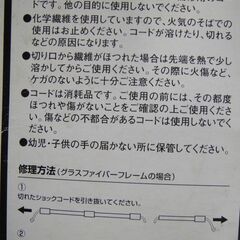 です。他の目的に使用しないでください。
●化学繊維を使用していますので、火気のそばでの
使用はお止めください。コードが溶けたり、切れる
などの原因になります。
●切り口から繊維がほつれた場合は先端を熱で少し
溶かしてからご使用ください。その際に火傷など、
ケガのないように十分ご注意ください。
●コードは消耗品です。ご使用の前には、その都度
ほつれや傷がないことをご確認の上ご使用くださ
い。傷などの不都合があるコードは使用しないでく
ださい。
●幼児・子供の手の届かない所に保管してください。
修理方法(グラスファイバーフレームの場合)
①
切れたショックコードを引き抜いてください。
②